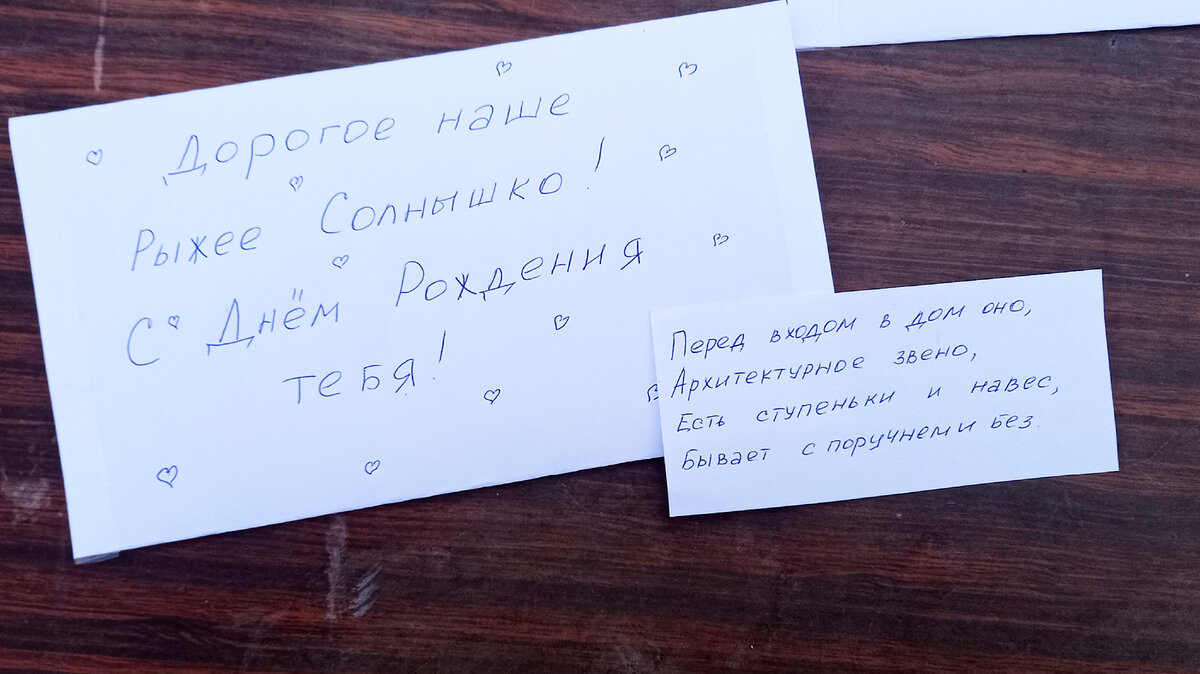 Дорогое наше
Рыжее Солнышко!
С Днём Рождения
тебя!
Перед входом в дом оно,
Архитектурное звено,
Есть ступеньки и навес,
Бывает с поручнем и без.